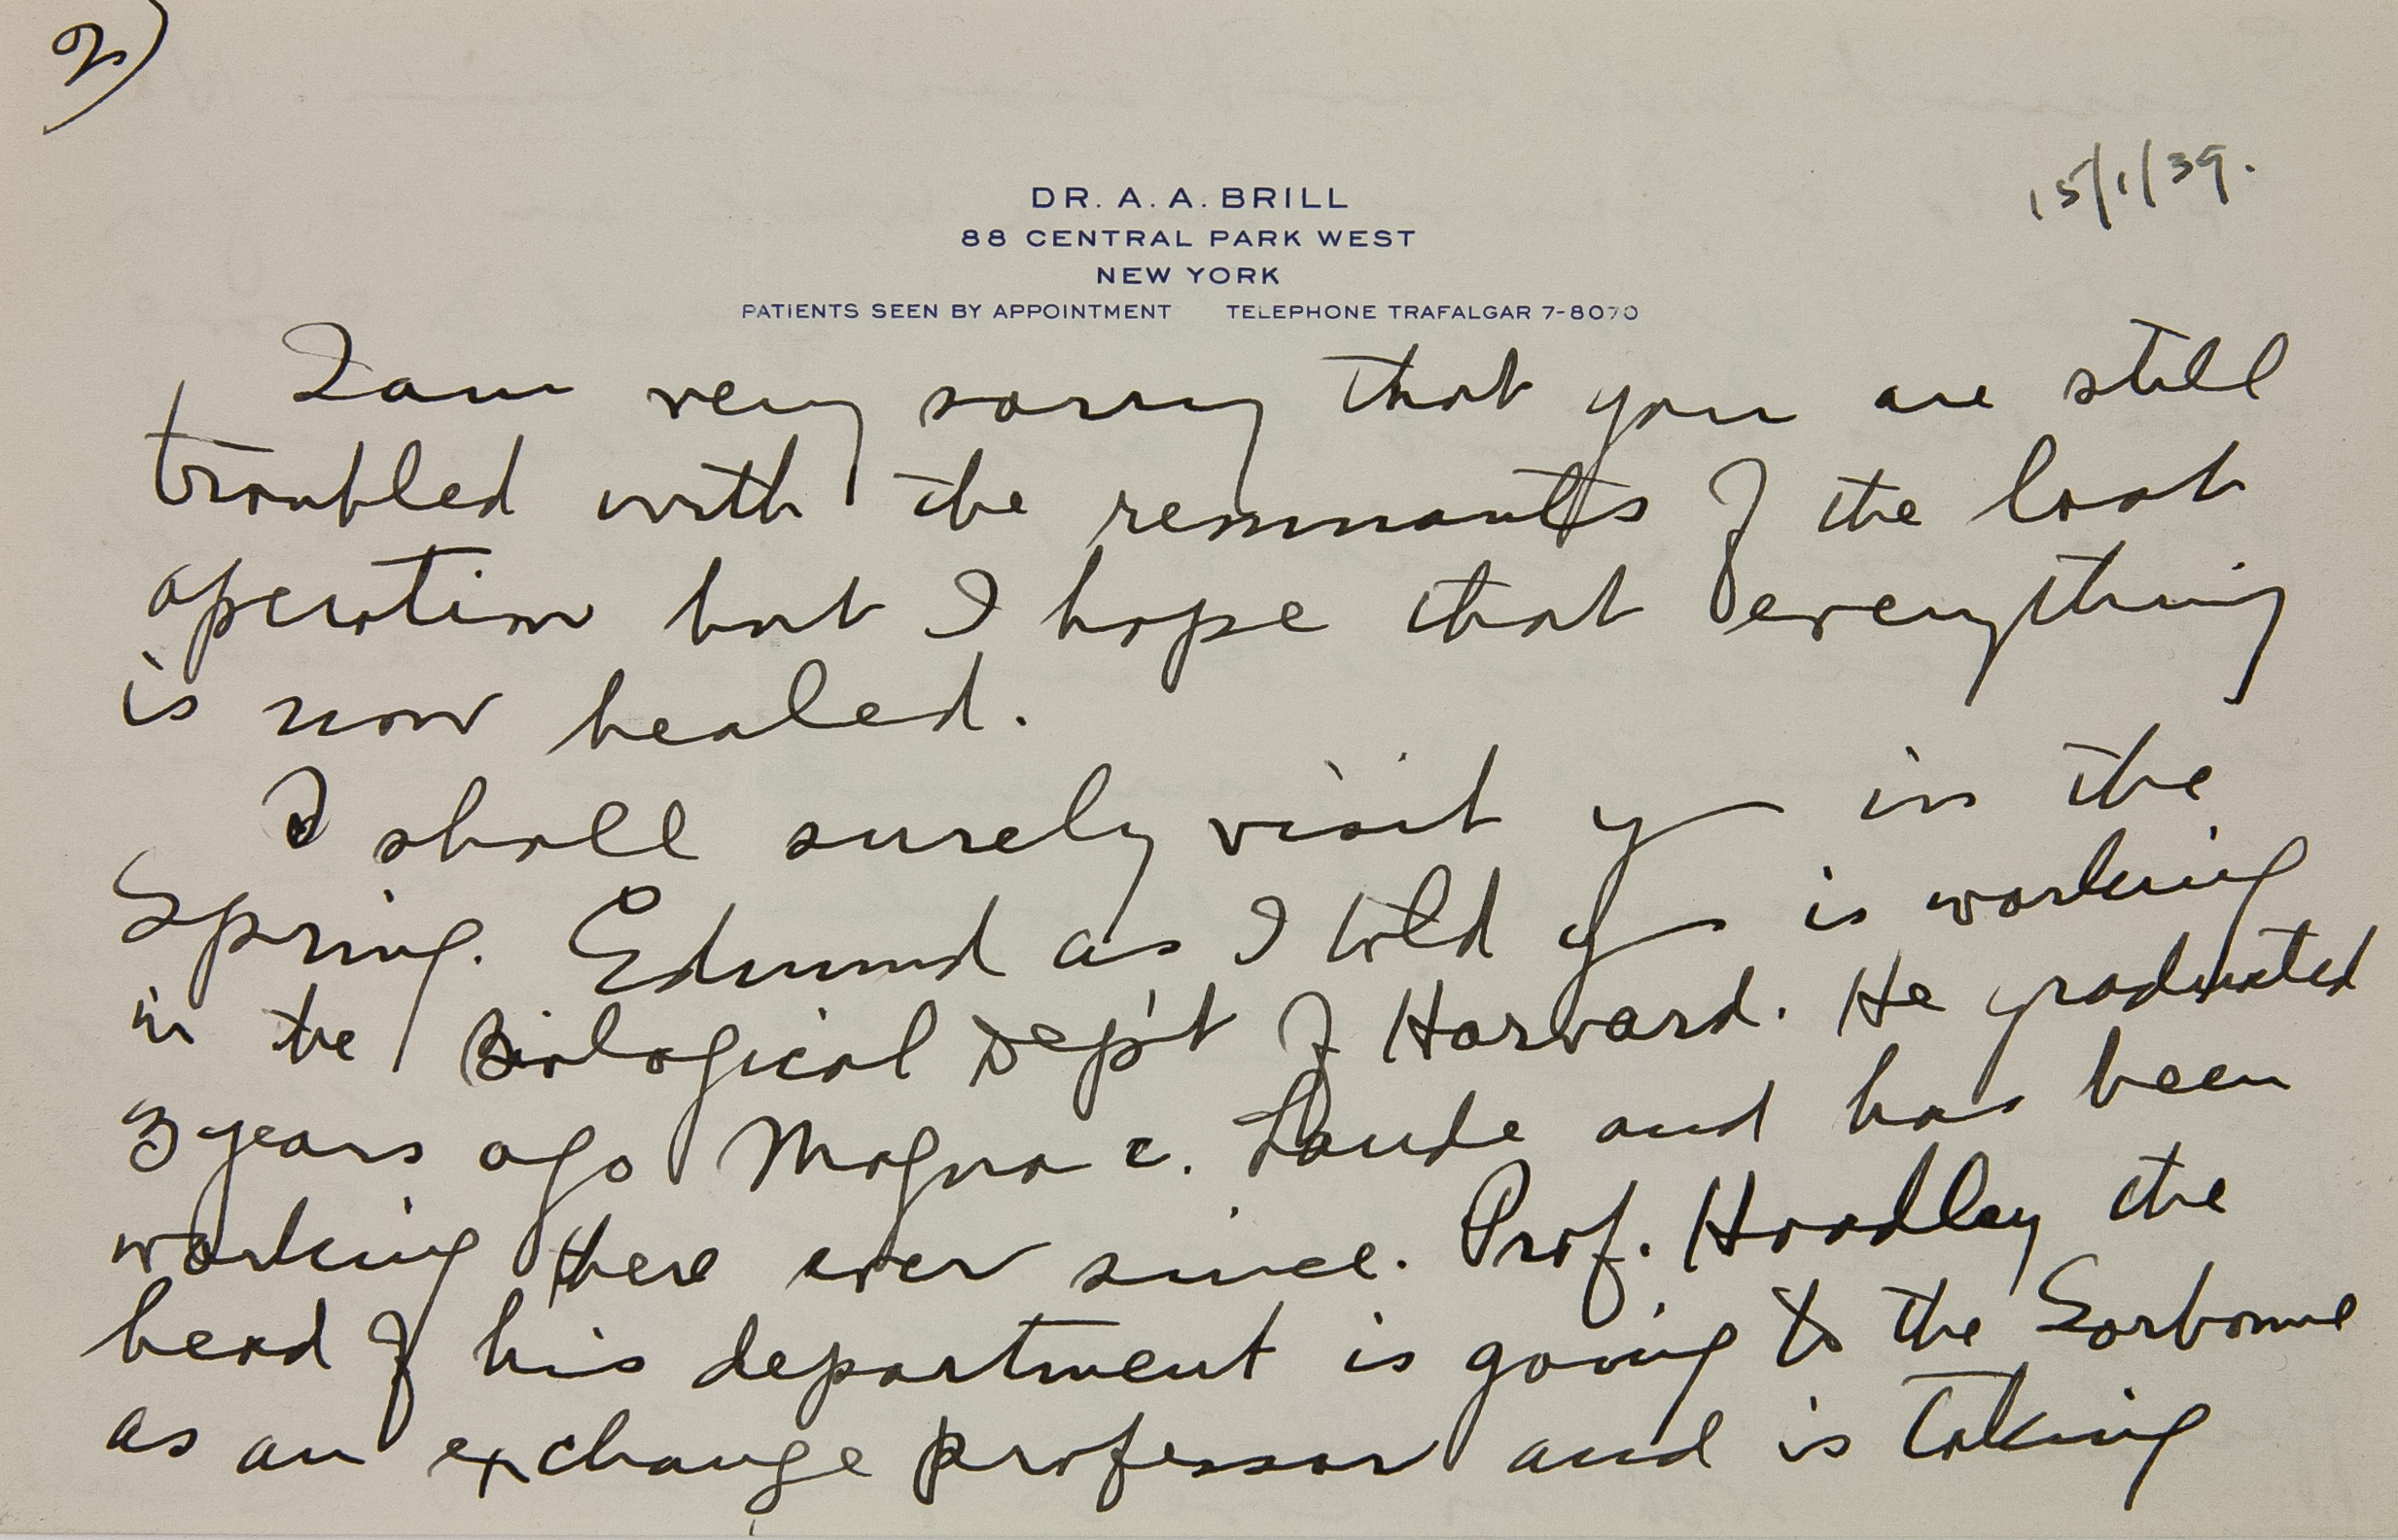 2)
15/1/39.
DR. A. A. BRILL
88 CENTRAL PARK WEST
NEW YORK
PATIENTS SEEN BY APPOINTMENT TELEPHONE TRAFALGAR 7-8070
I am very sorry that you are still
troubled with the remnants of the last
operation but I hope that everything
is now healed.
I shall surely visit you in the
Spring. Edmund as I told you is working
in the Biological Dep't of Harvard. He graduated
3 years ago Magna c. Laude and has been
working there ever since. Prof. Hoadley the
head of his department is going to the Sorbonne
as an exchange professor and is taking